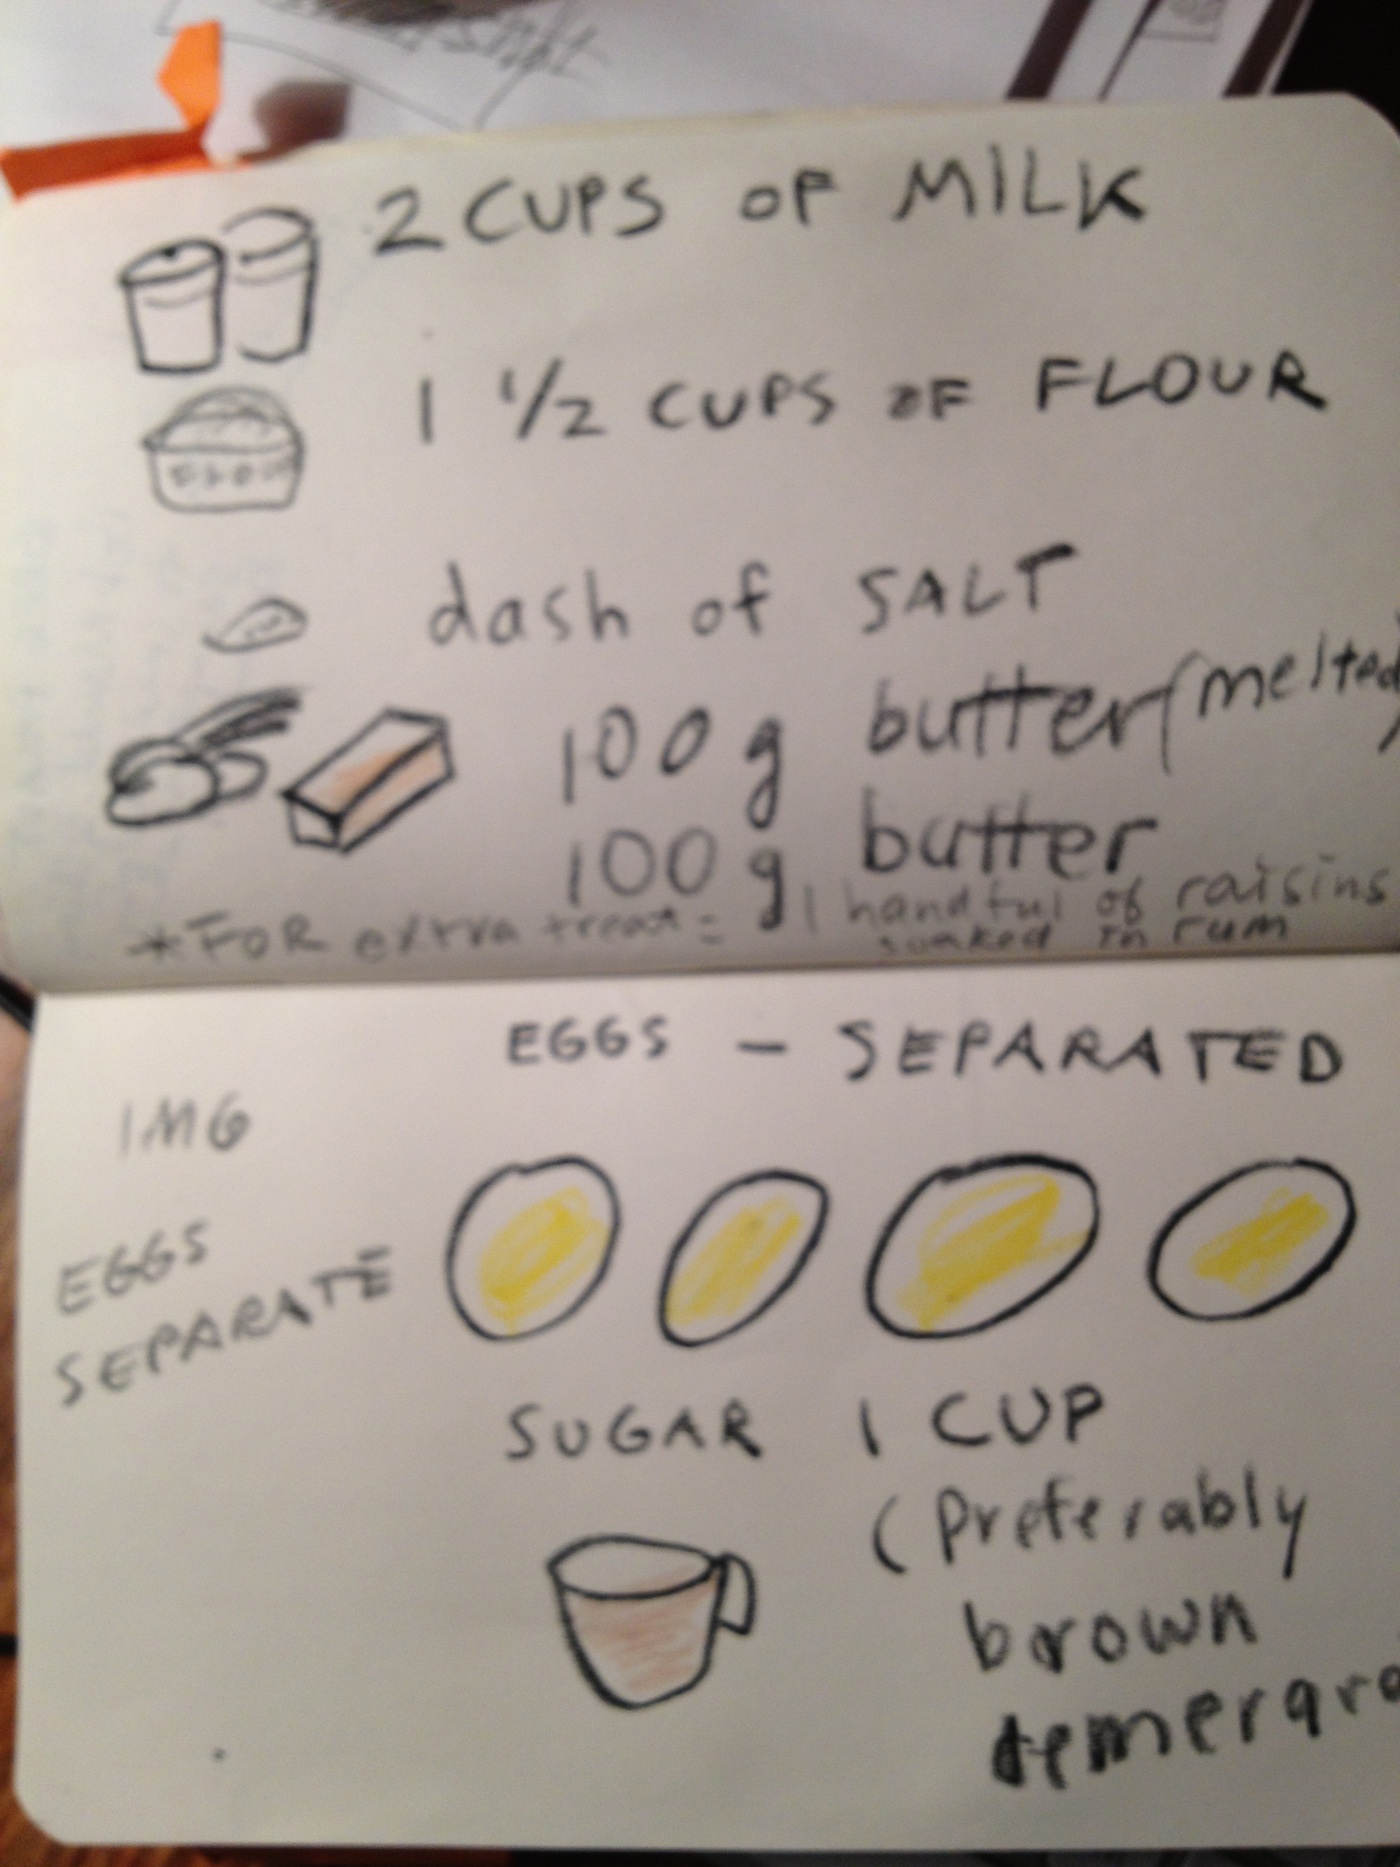 2 CUPS OF MILK
1 1/2 CUPS OF FLOUR
FLOUR
dash of SALT
100 g butter (melted)
100 g butter
*FOR extra treat = 1 handful of raisins
soaked in rum
EGGS - SEPARATED
IMG
EGGS
SEPARATE
SUGAR 1 CUP
(Preferably
brown